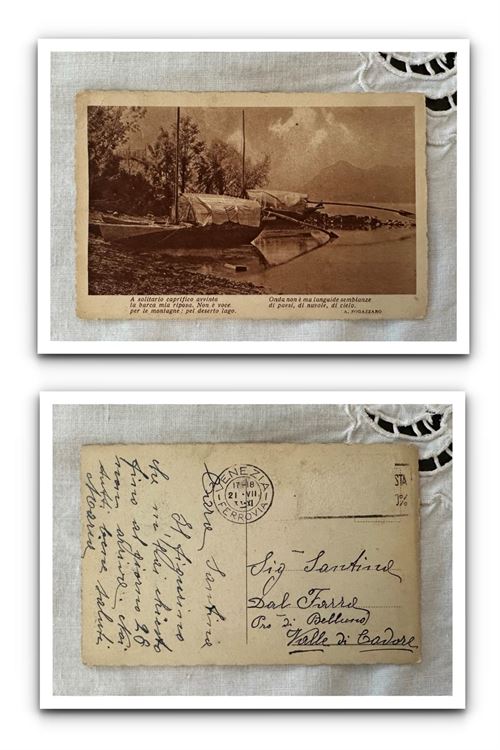 A solitario caprifico avvinta
la barca mia riposa. Non è voce
per le montagne: pel deserto lago.
Onda non è ma languide semblanze
di paesi, di nuvole, di cielo.
A. FOGAZZARO
VENEZIA
17-18
21 · VII
FERROVIA
STA
3%
Cara Santina
Il figurino
fino al giorno 28
non arriva. Noi
tutti bene saluti
Maria
Sig Santina
Dal Farra
Pro di Belluno
Valle di Cadore